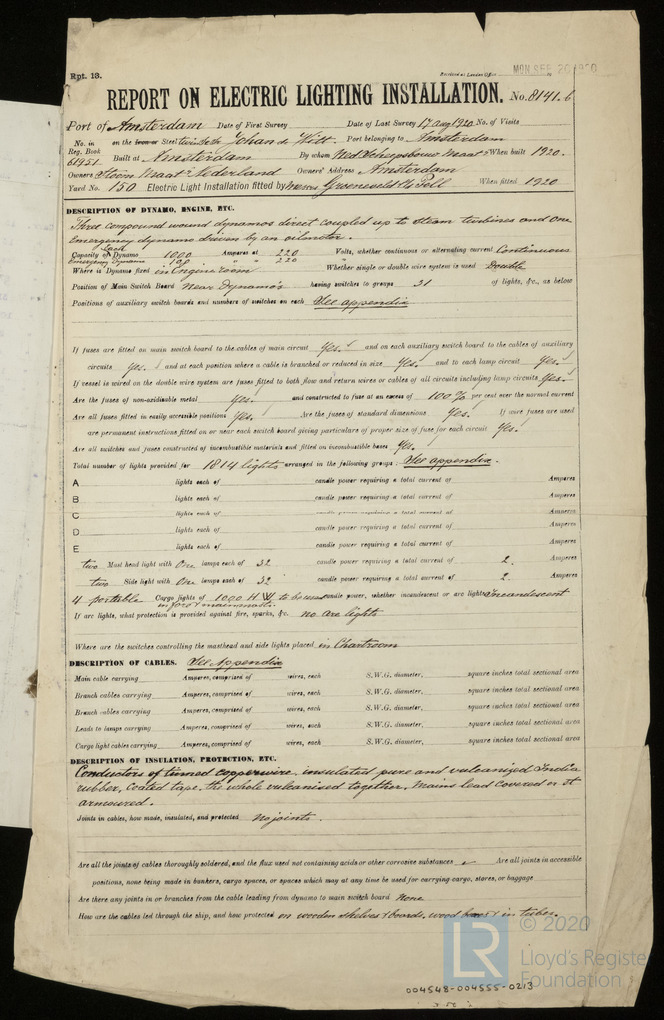 Rpt. 13.
Received at London Office MON. SEP. 20 1920
REPORT ON ELECTRIC LIGHTING INSTALLATION. No. 8141.b
Port of Amsterdam Date of First Survey Date of Last Survey 17 aug 1920 No. of Visits
No. in Reg. Book 61951 on the Iron or Steel Johan de Witt Port belonging to Amsterdam
Built at Amsterdam By whom Ned Scheepsbouw Maat When built 1920.
Owners Stoom Maat Nederland Owners' Address Amsterdam
Yard No. 150 Electric Light Installation fitted by When fitted 1920
DESCRIPTION OF DYNAMO, ENGINE, ETC.
Three compound wound dynamos direct coupled up to steam turbines and one
Emergency dynamo driven by an oilmotor.
Capacity of each Dynamo 1000 Amperes at 220 Volts, whether continuous or alternating current Continuous
Emergency Dynamo 100 " " 220
Where is Dynamo fixed in Engine room Whether single or double wire system is used Double
Position of Main Switch Board Near Dynamo's having switches to groups 31 of lights, &c., as below
Positions of auxiliary switch boards and numbers of switches on each See appendix
If fuses are fitted on main switch board to the cables of main circuit Yes. and on each auxiliary switch board to the cables of auxiliary
circuits Yes. and at each position where a cable is branched or reduced in size Yes. and to each lamp circuit Yes.
If vessel is wired on the double wire system are fuses fitted to both flow and return wires or cables of all circuits including lamp circuits Yes.
Are the fuses of non-oxidizable metal Yes. and constructed to fuse at an excess of 100 % per cent over the normal current
Are all fuses fitted in easily accessible positions Yes. Are the fuses of standard dimensions Yes. If wire fuses are used
are permanent instructions fitted on or near each switch board giving particulars of proper size of fuse for each circuit Yes.
Are all switches and fuses constructed of incombustible materials and fitted on incombustible bases Yes.
Total number of lights provided for 1814 lights arranged in the following groups: See appendix.
A lights each of candle power requiring a total current of Amperes
B lights each of candle power requiring a total current of Amperes
C lights each of candle power requiring a total current of Amperes
D lights each of candle power requiring a total current of Amperes
E lights each of candle power requiring a total current of Amperes
two Mast head light with One lamps each of 32 candle power requiring a total current of 2. Amperes
two Side light with One lamps each of 32 candle power requiring a total current of 2. Amperes
4 portable Cargo lights of 1000 H W to be used candle power, whether incandescent or arc lights Incandescent
in for & mainmasts.
If arc lights, what protection is provided against fire, sparks, &c. no arc lights
Where are the switches controlling the masthead and side lights placed in Chartroom
DESCRIPTION OF CABLES. See Appendix
Main cable carrying Amperes, comprised of wires, each S.W.G. diameter, square inches total sectional area
Branch cables carrying Amperes, comprised of wires, each S.W.G. diameter, square inches total sectional area
Branch cables carrying Amperes, comprised of wires, each S.W.G. diameter, square inches total sectional area
Leads to lamps carrying Amperes, comprised of wires, each S.W.G. diameter, square inches total sectional area
Cargo light cables carrying Amperes, comprised of wires, each S.W.G. diameter, square inches total sectional area
DESCRIPTION OF INSULATION, PROTECTION, ETC.
Conductors of tinned copperwire, insulated pure and vulcanized India
rubber, coated tape, the whole vulcanised together. Mains lead covered or it
armoured.
Joints in cables, how made, insulated, and protected No joints.
Are all the joints of cables thoroughly soldered, and the flux used not containing acids or other corrosive substances Are all joints in accessible
positions, none being made in bunkers, cargo spaces, or spaces which may at any time be used for carrying cargo, stores, or baggage
Are there any joints in or branches from the cable leading from dynamo to main switch board None
How are the cables led through the ship, and how protected on wooden shelves & boards, wood & in tubes.
LR © 2020
Lloyd's Register
Foundation
004548-004555-0213